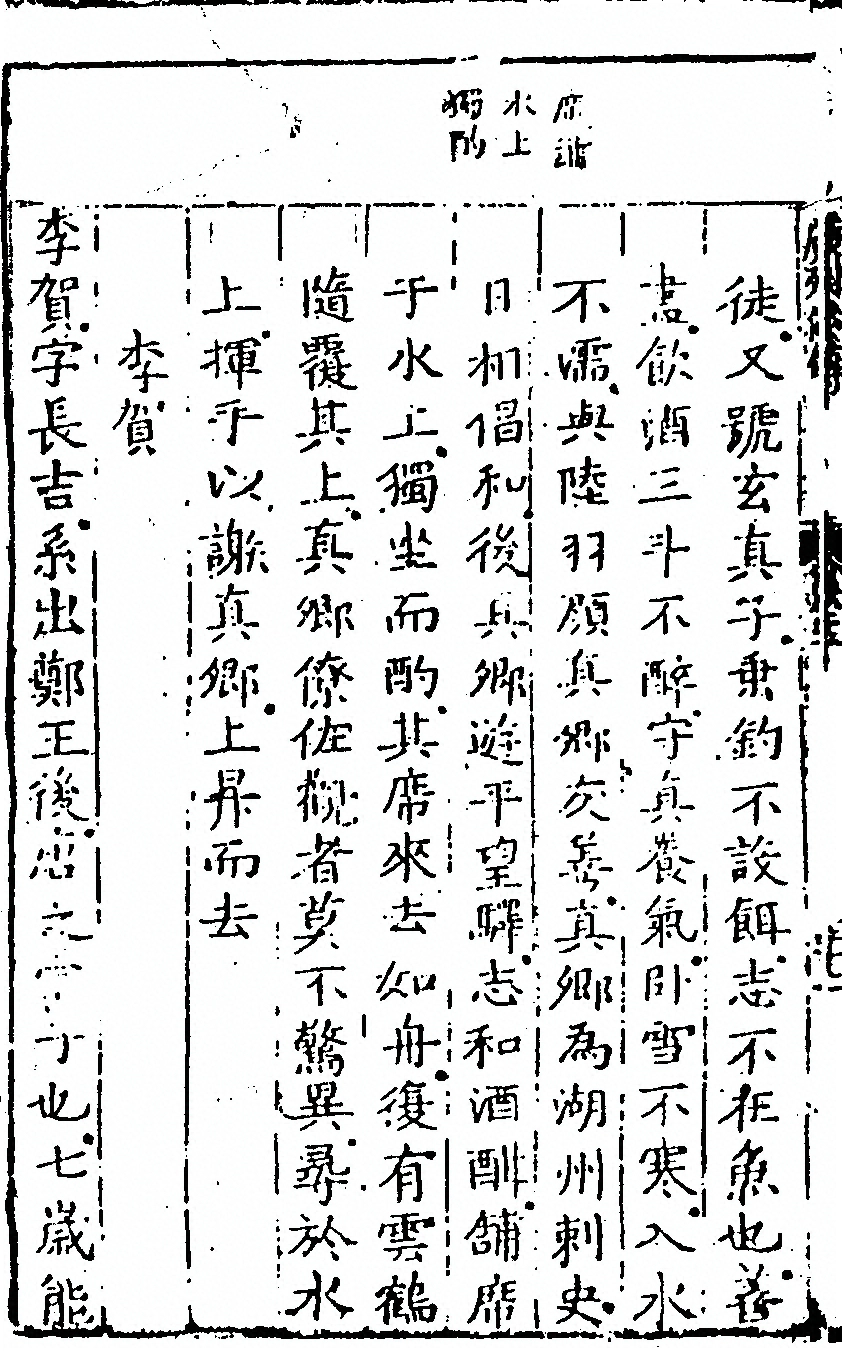 席
水上
獨酌
徒又號玄真子乗釣不設餌志不在魚也善
畵飲酒三斗不醉守真養氣卧雪不寒入水
不濡與陸羽顔真卿友善真卿為湖州刺史
日相倡和後真卿遊平望驛志和酒酣舖席
于水上獨坐而酌其席來去如舟復有雲鶴
隨覆其上真卿僚佐觀者莫不驚異尋於水
上揮手以謝真卿上昇而去
李賀
李賀字長吉系出鄭王後也七歲能